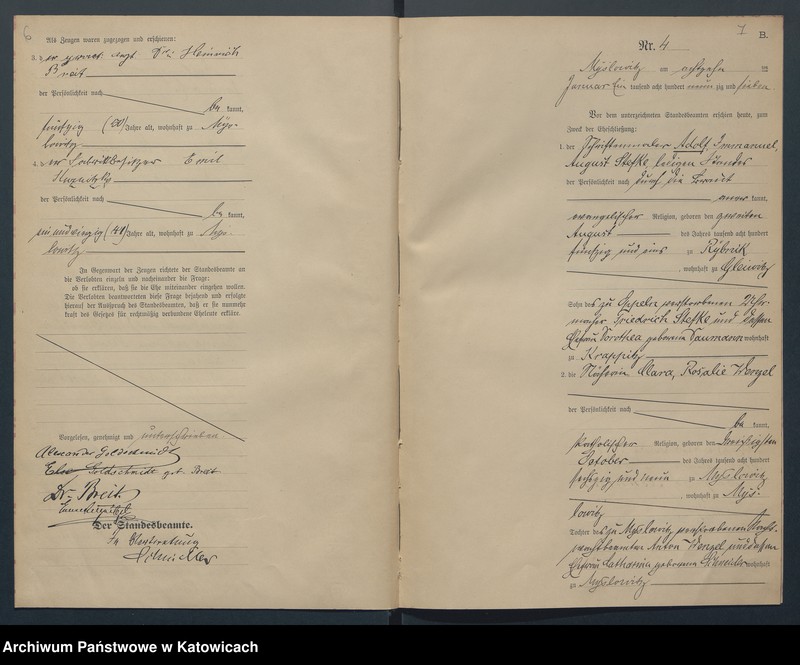 6
Als Zeugen waren zugezogen und erschienen:
3. der pract. Arzt Dr. Heinrich
Breit
der Persönlichkeit nach
be kannt,
fünfzig (50) Jahre alt, wohnhaft zu Mys-
lowitz
4. der Fabrikbesitzer Emil
der Persönlichkeit nach
be kannt,
Jahre alt, wohnhaft zu Mys-
lowitz
In Gegenwart der Zeugen richtete der Standesbeamte an
die Verlobten einzeln und nacheinander die Frage:
ob sie erklären, daß sie die Ehe miteinander eingehen wollen.
Die Verlobten beantworteten diese Frage bejahend und erfolgte
hierauf der Ausspruch des Standesbeamten, daß er sie nunmehr
kraft des Gesetzes für rechtmäßig verbundene Eheleute erkläre.
Vorgelesen, genehmigt und unterschrieben
Alexander Goldschmidt
Goldschmidt geb. Breit
Dr. Breit
Der Standesbeamte.
In Vertretung
7 B.
Nr. 4
Myslowitz am achtzehn ten
Januar Ein tausend acht hundert neun zig und sieben
Vor dem unterzeichneten Standesbeamten erschien heute, zum
Zweck der Eheschließung:
1. der Schriftenmaler Adolf, Immanuel,
August Stefke, ledigen Standes
der Persönlichkeit nach durch die Braut
aner kannt,
evangelischer Religion, geboren den zweiten
August des Jahres tausend acht hundert
fünfzig und eins zu Rybnik
, wohnhaft zu Gleiwitz
Sohn des zu Oppeln verstorbenen Uhr-
macher Friedrich Stefke und dessen
Ehefrau Dorothea geborene Naumann wohnhaft
zu Krappitz
2. die Näherin Clara, Rosalie Wenzel
der Persönlichkeit nach
be kannt,
katholischer Religion, geboren den dreißigsten
October des Jahres tausend acht hundert
sechzig und neun zu Myslowitz
, wohnhaft zu Mys-
lowitz
Tochter des zu Myslowitz verstorbenen
Anton Wenzel, und dessen
Ehefrau Catharina geborene Schneider wohnhaft
zu Myslowitz
Archiwum Państwowe w Katowicach